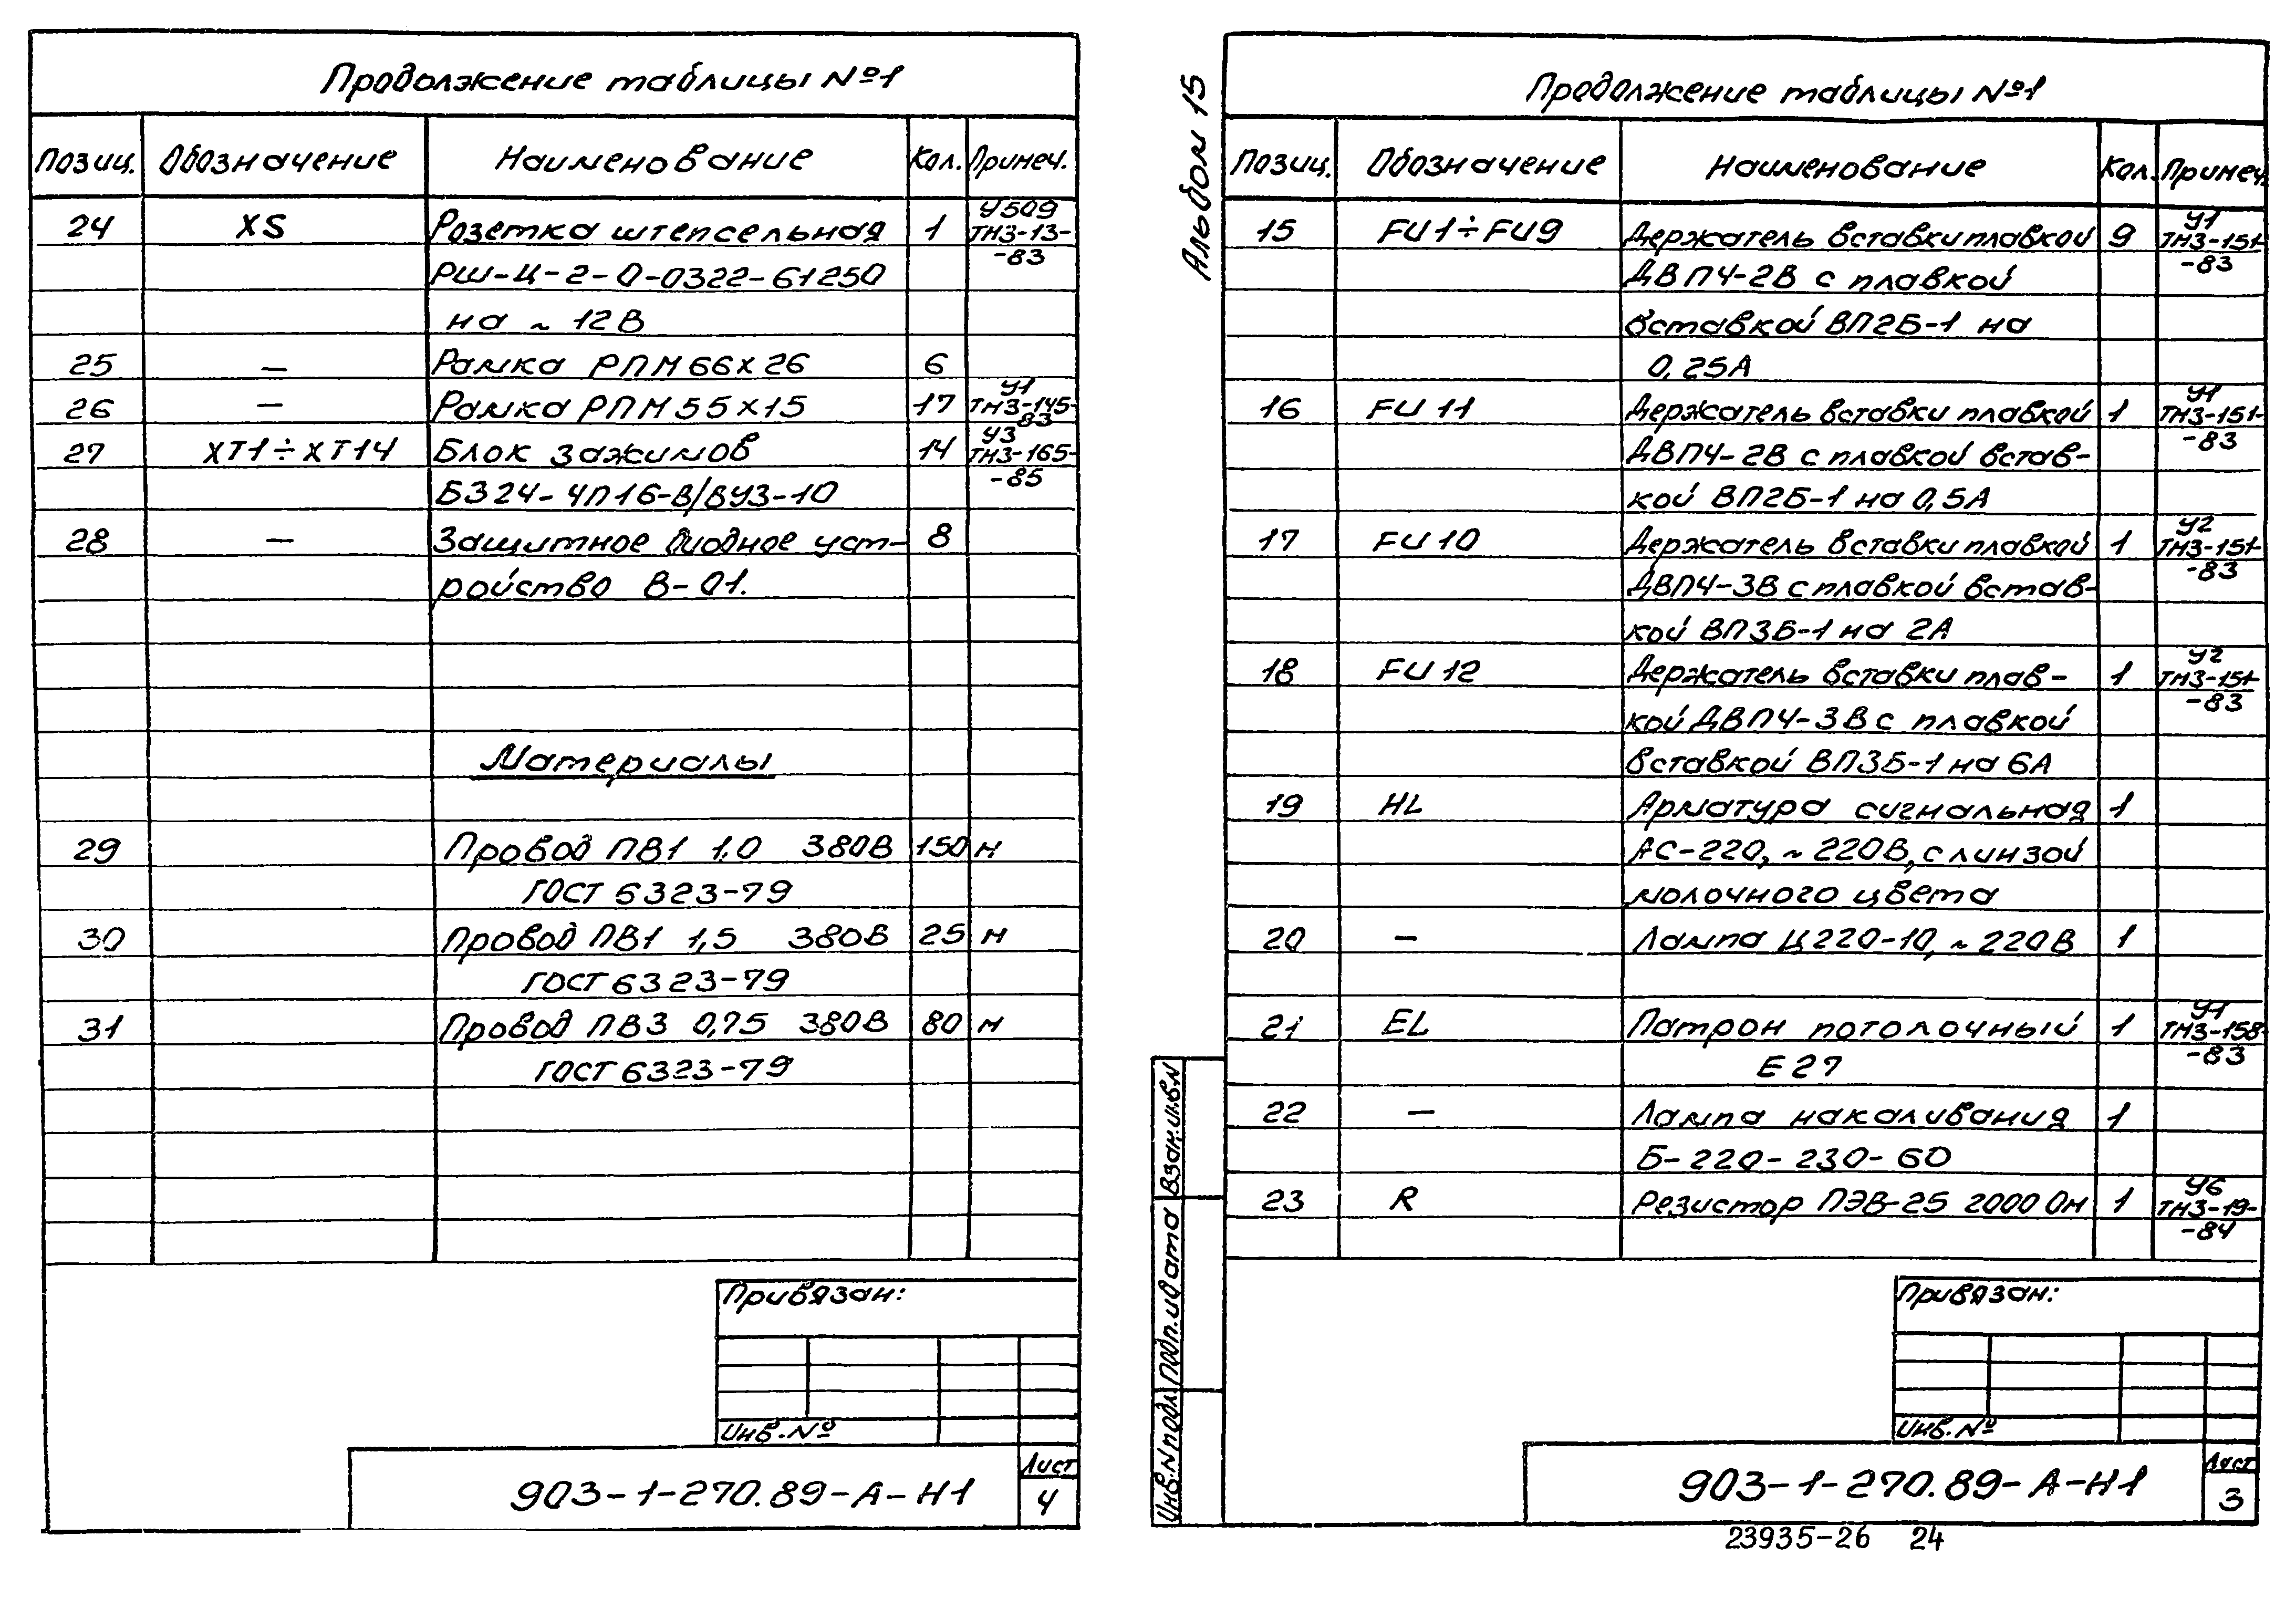 Продолжение таблицы №1
Позиц. Обозначение Наименование Кол. Примеч.
24 XS Розетка штепсельная 1 У509 ТМ3-13-
РШ-Ц-2-0-0322-61250 -83
на ~ 12В
25 — Рамка РПМ 66х26 6
26 — Рамка РПМ 55х15 17 У1 ТМ3-145-83
27 XT1÷XT14 Блок зажимов 14 У3 ТМ3-165-
БЗ24-4П16-В/ВУ3-10 -85
28 — Защитное диодное уст- 8
ройство В-01.
Материалы
29 Провод ПВ1 1,0 380В 150 м
ГОСТ 6323-79
30 Провод ПВ1 1,5 380В 25 м
ГОСТ 6323-79
31 Провод ПВ3 0,75 380В 80 м
ГОСТ 6323-79
Привязан:
Инв. №
903-1-270.89-А-Н1
Лист
4
Альбом 15
Продолжение таблицы №1
Позиц. Обозначение Наименование Кол. Примеч.
15 FU1÷FU9 Держатель вставки плавкой 9 У1 ТМ3-151-
ДВП4-2В с плавкой -83
вставкой ВП2Б-1 на
0,25А
16 FU11 Держатель вставки плавкой 1 У1 ТМ3-151-
ДВП4-2В с плавкой встав- -83
кой ВП2Б-1 на 0,5А
17 FU10 Держатель вставки плавкой 1 У2 ТМ3-151-
ДВП4-3В с плавкой встав- -83
кой ВП3Б-1 на 2А
18 FU12 Держатель вставки плав- 1 У2 ТМ3-151-
кой ДВП4-3В с плавкой -83
вставкой ВП3Б-1 на 6А
19 HL Арматура сигнальная 1
АС-220, ~ 220В, с линзой
молочного цвета
20 — Лампа Ц220-10, ~ 220В 1
21 EL Патрон потолочный 1 У1 ТМ3-158-
Е27 -83
22 — Лампа накаливания 1
Б-220-230-60
23 R Резистор ПЭВ-25 2000 Ом 1 У6 ТМ3-19-
-84
Взам.инв.N
Подп. и дата
Инв.N подл.
Привязан:
Инв. №
903-1-270.89-А-Н1
Лист
3
23935-26 24